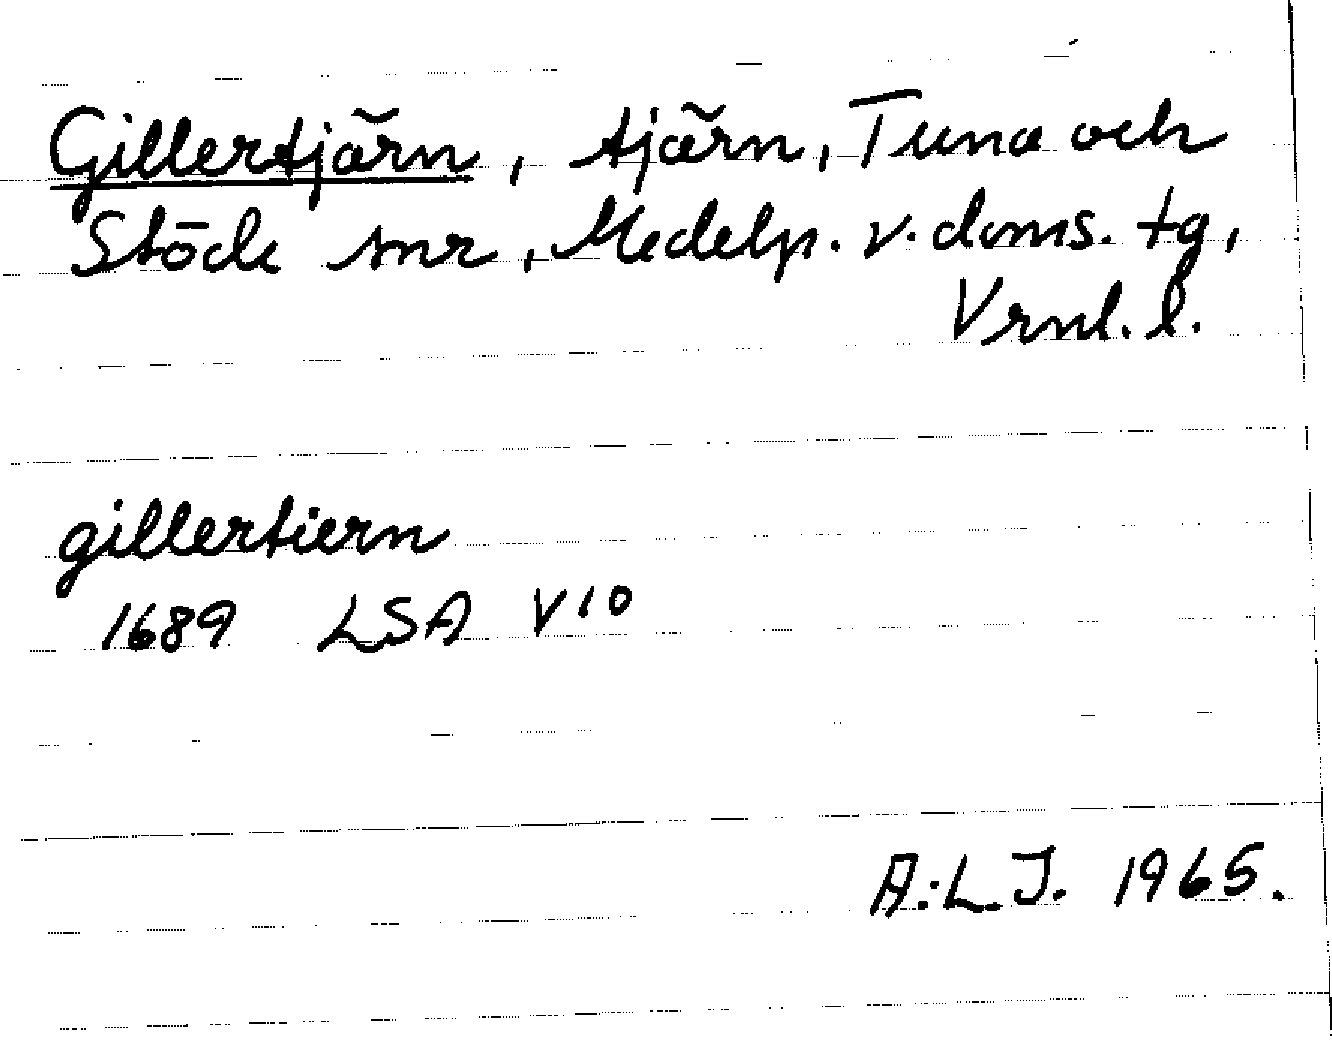 Gillertjärn, tjärn, Tuna och
Stöde snr, Medelp. v. doms. tg,
Vrnl. l.
gillertiern
1689 LSA V10
A:L.J. 1965.